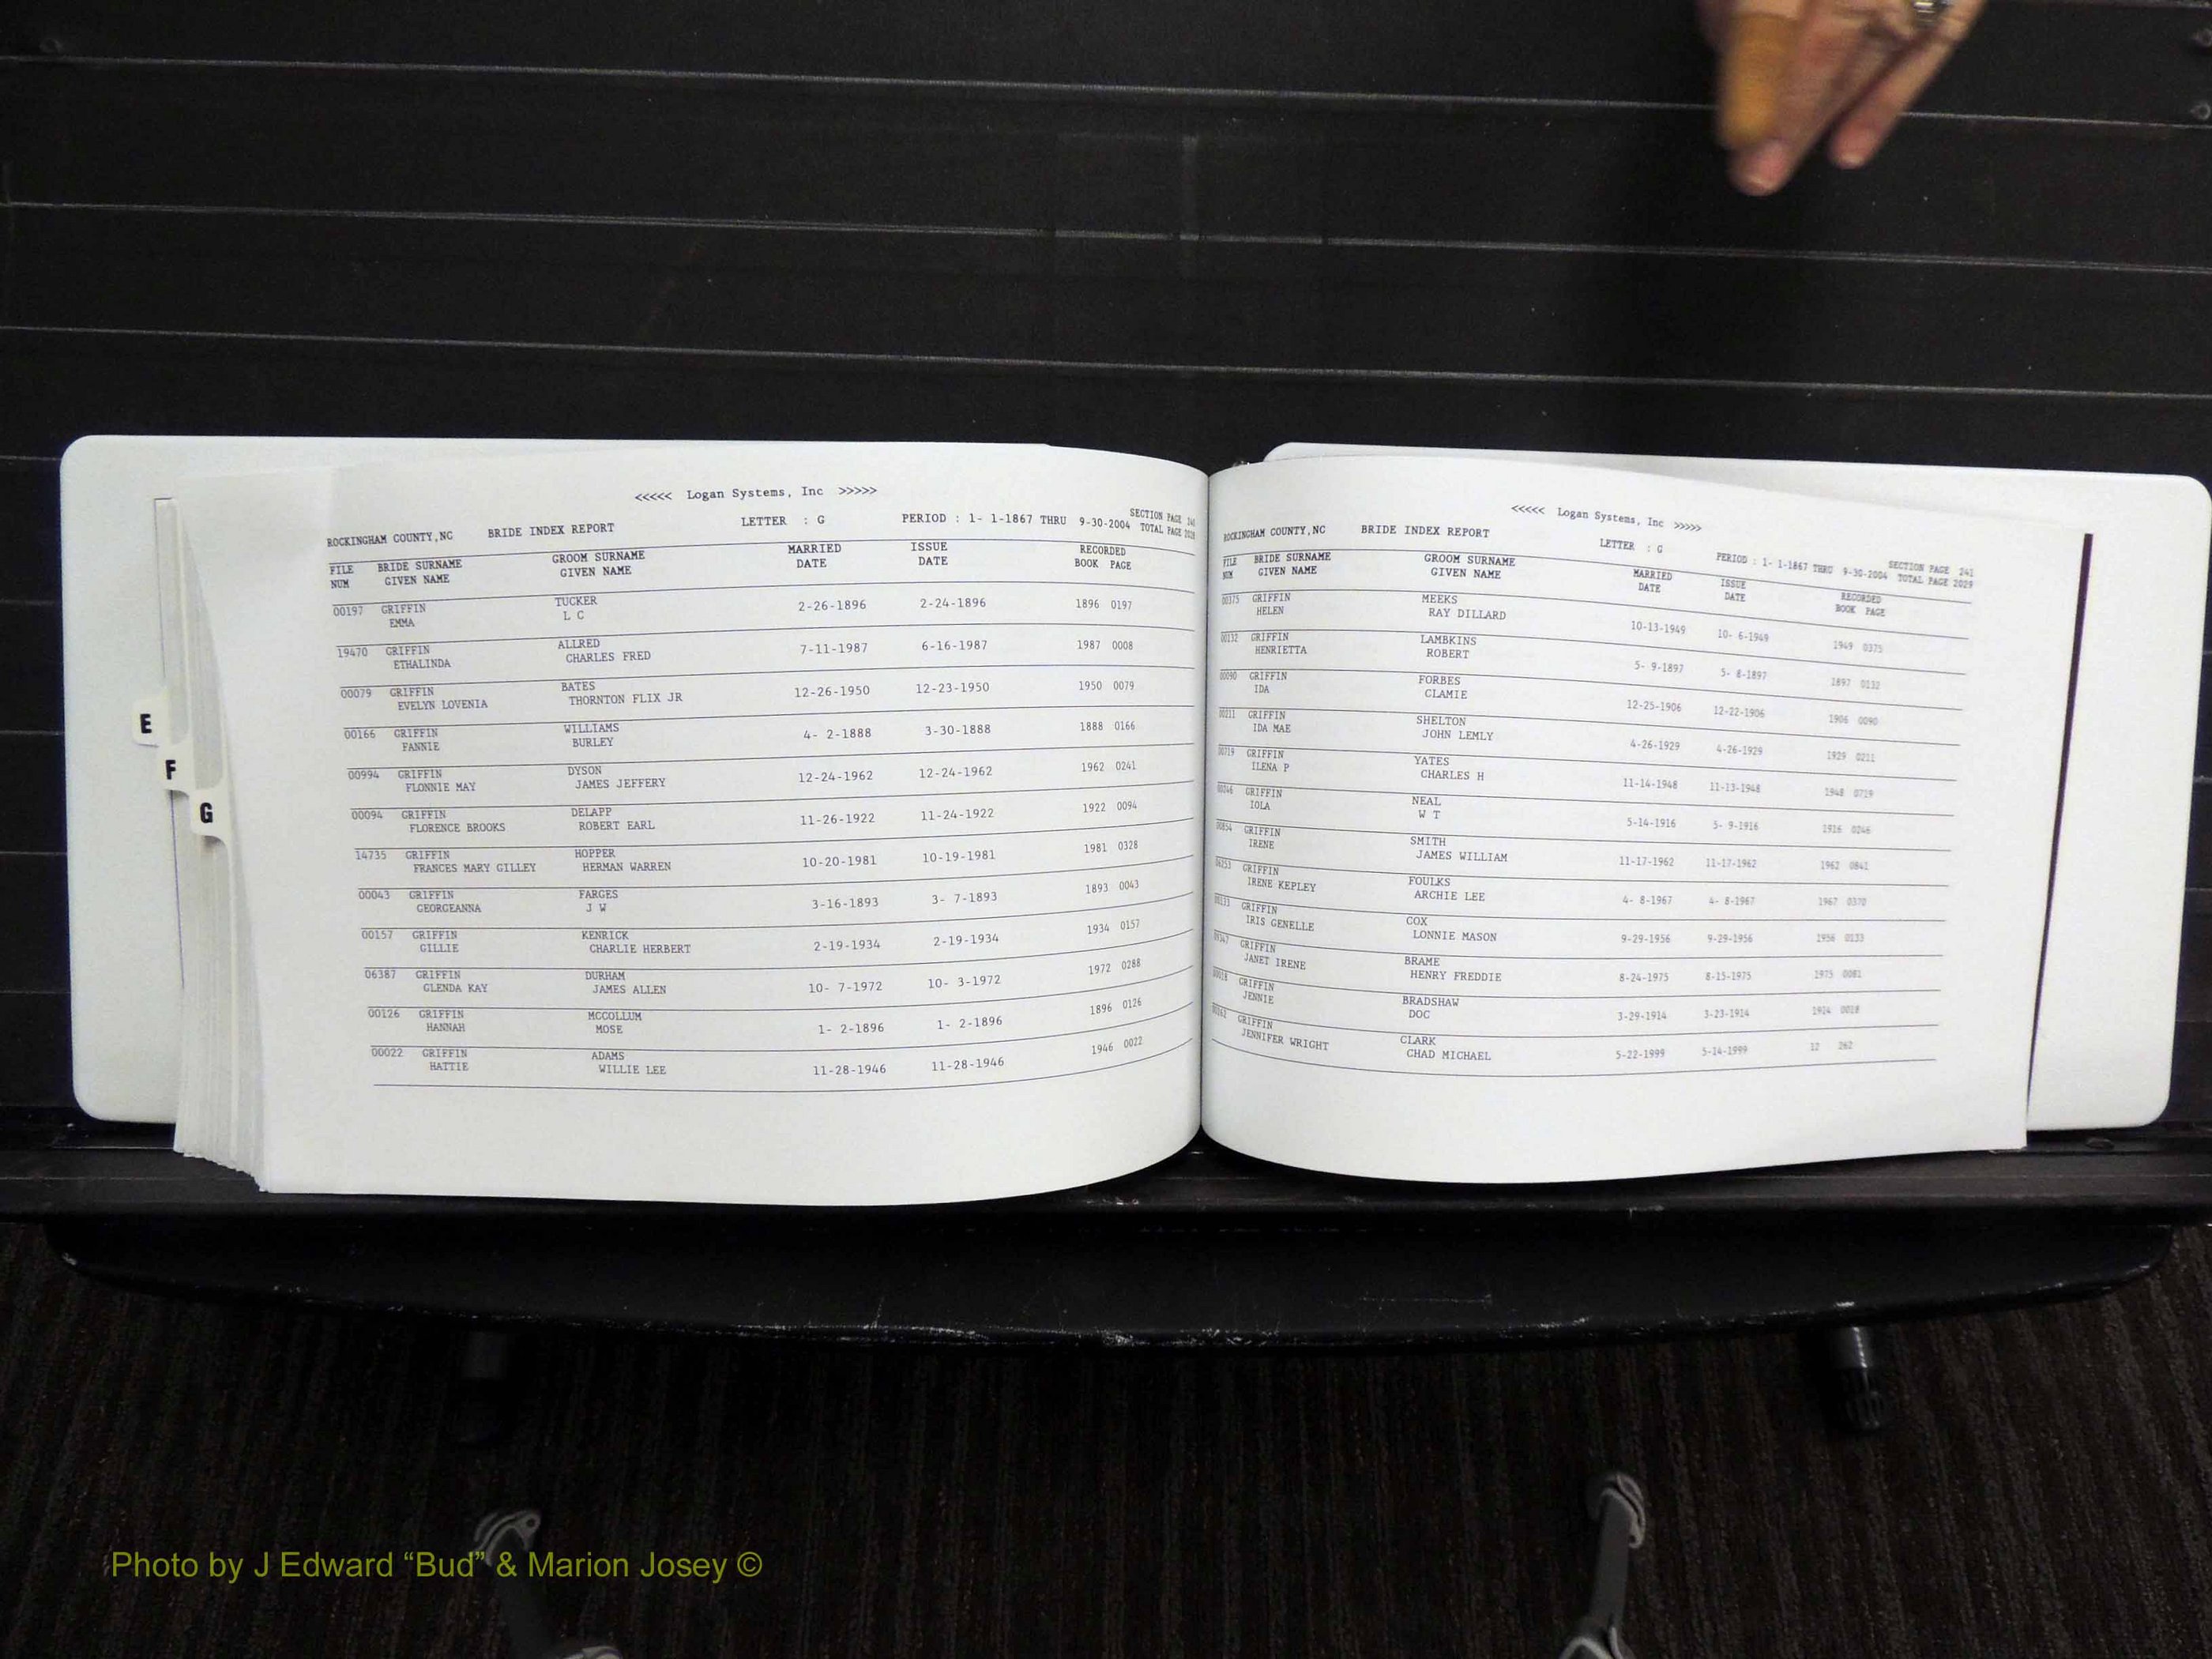 <<<<< Logan Systems, Inc >>>>>
ROCKINGHAM COUNTY,NC BRIDE INDEX REPORT LETTER : G PERIOD : 1- 1-1867 THRU 9-30-2004 SECTION PAGE
TOTAL PAGE
FILE BRIDE SURNAME GROOM SURNAME MARRIED ISSUE RECORDED
NUM GIVEN NAME GIVEN NAME DATE DATE BOOK PAGE
00197 GRIFFIN TUCKER 2-26-1896 2-24-1896 1896 0197
EMMA L C
19470 GRIFFIN ALLRED 7-11-1987 6-16-1987 1987 0008
ETHALINDA CHARLES FRED
00079 GRIFFIN BATES 12-26-1950 12-23-1950 1950 0079
EVELYN LOVENIA THORNTON FLIX JR
00166 GRIFFIN WILLIAMS 4- 2-1888 3-30-1888 1888 0166
FANNIE BURLEY
00994 GRIFFIN DYSON 12-24-1962 12-24-1962 1962 0241
FLONNIE MAY JAMES JEFFERY
00094 GRIFFIN DELAPP 11-26-1922 11-24-1922 1922 0094
FLORENCE BROOKS ROBERT EARL
14735 GRIFFIN HOPPER 10-20-1981 10-19-1981 1981 0328
FRANCES MARY GILLEY HERMAN WARREN
00043 GRIFFIN FARGES 3-16-1893 3- 7-1893 1893 0043
GEORGEANNA J W
00157 GRIFFIN KENRICK 2-19-1934 2-19-1934 1934 0157
GILLIE CHARLIE HERBERT
06387 GRIFFIN DURHAM 10- 7-1972 10- 3-1972 1972 0288
GLENDA KAY JAMES ALLEN
00126 GRIFFIN MCCOLLUM 1- 2-1896 1- 2-1896 1896 0126
HANNAH MOSE
00022 GRIFFIN ADAMS 11-28-1946 11-28-1946 1946 0022
HATTIE WILLIE LEE
E
F
G
<<<<< Logan Systems, Inc >>>>>
ROCKINGHAM COUNTY,NC BRIDE INDEX REPORT LETTER : G PERIOD : 1- 1-1867 THRU 9-30-2004 SECTION PAGE 241
TOTAL PAGE 2029
FILE BRIDE SURNAME GROOM SURNAME MARRIED ISSUE RECORDED
NUM GIVEN NAME GIVEN NAME DATE DATE BOOK PAGE
00375 GRIFFIN MEEKS 10-13-1949 10- 6-1949 1949 0375
HELEN RAY DILLARD
00132 GRIFFIN LAMBKINS 5- 9-1897 5- 8-1897 1897 0132
HENRIETTA ROBERT
00090 GRIFFIN FORBES 12-25-1906 12-22-1906 1906 0090
IDA CLAMIE
00211 GRIFFIN SHELTON 4-26-1929 4-26-1929 1929 0211
IDA MAE JOHN LEMLY
00719 GRIFFIN YATES 11-14-1948 11-13-1948 1948 0719
ILENA P CHARLES H
00246 GRIFFIN NEAL 5-14-1916 5- 9-1916 1916 0246
IOLA W T
00854 GRIFFIN SMITH 11-17-1962 11-17-1962 1962 0841
IRENE JAMES WILLIAM
GRIFFIN FOULKS 4- 8-1967 4- 8-1967 1967 0370
IRENE KEPLEY ARCHIE LEE
00133 GRIFFIN COX 9-29-1956 9-29-1956 1956 0133
IRIS GENELLE LONNIE MASON
GRIFFIN BRAME 8-24-1975 8-15-1975 1975 0081
JANET IRENE HENRY FREDDIE
00018 GRIFFIN BRADSHAW 3-29-1914 3-23-1914 1914 0018
JENNIE DOC
00262 GRIFFIN CLARK 5-22-1999 5-14-1999 12 262
JENNIFER WRIGHT CHAD MICHAEL
Photo by J Edward “Bud” & Marion Josey ©